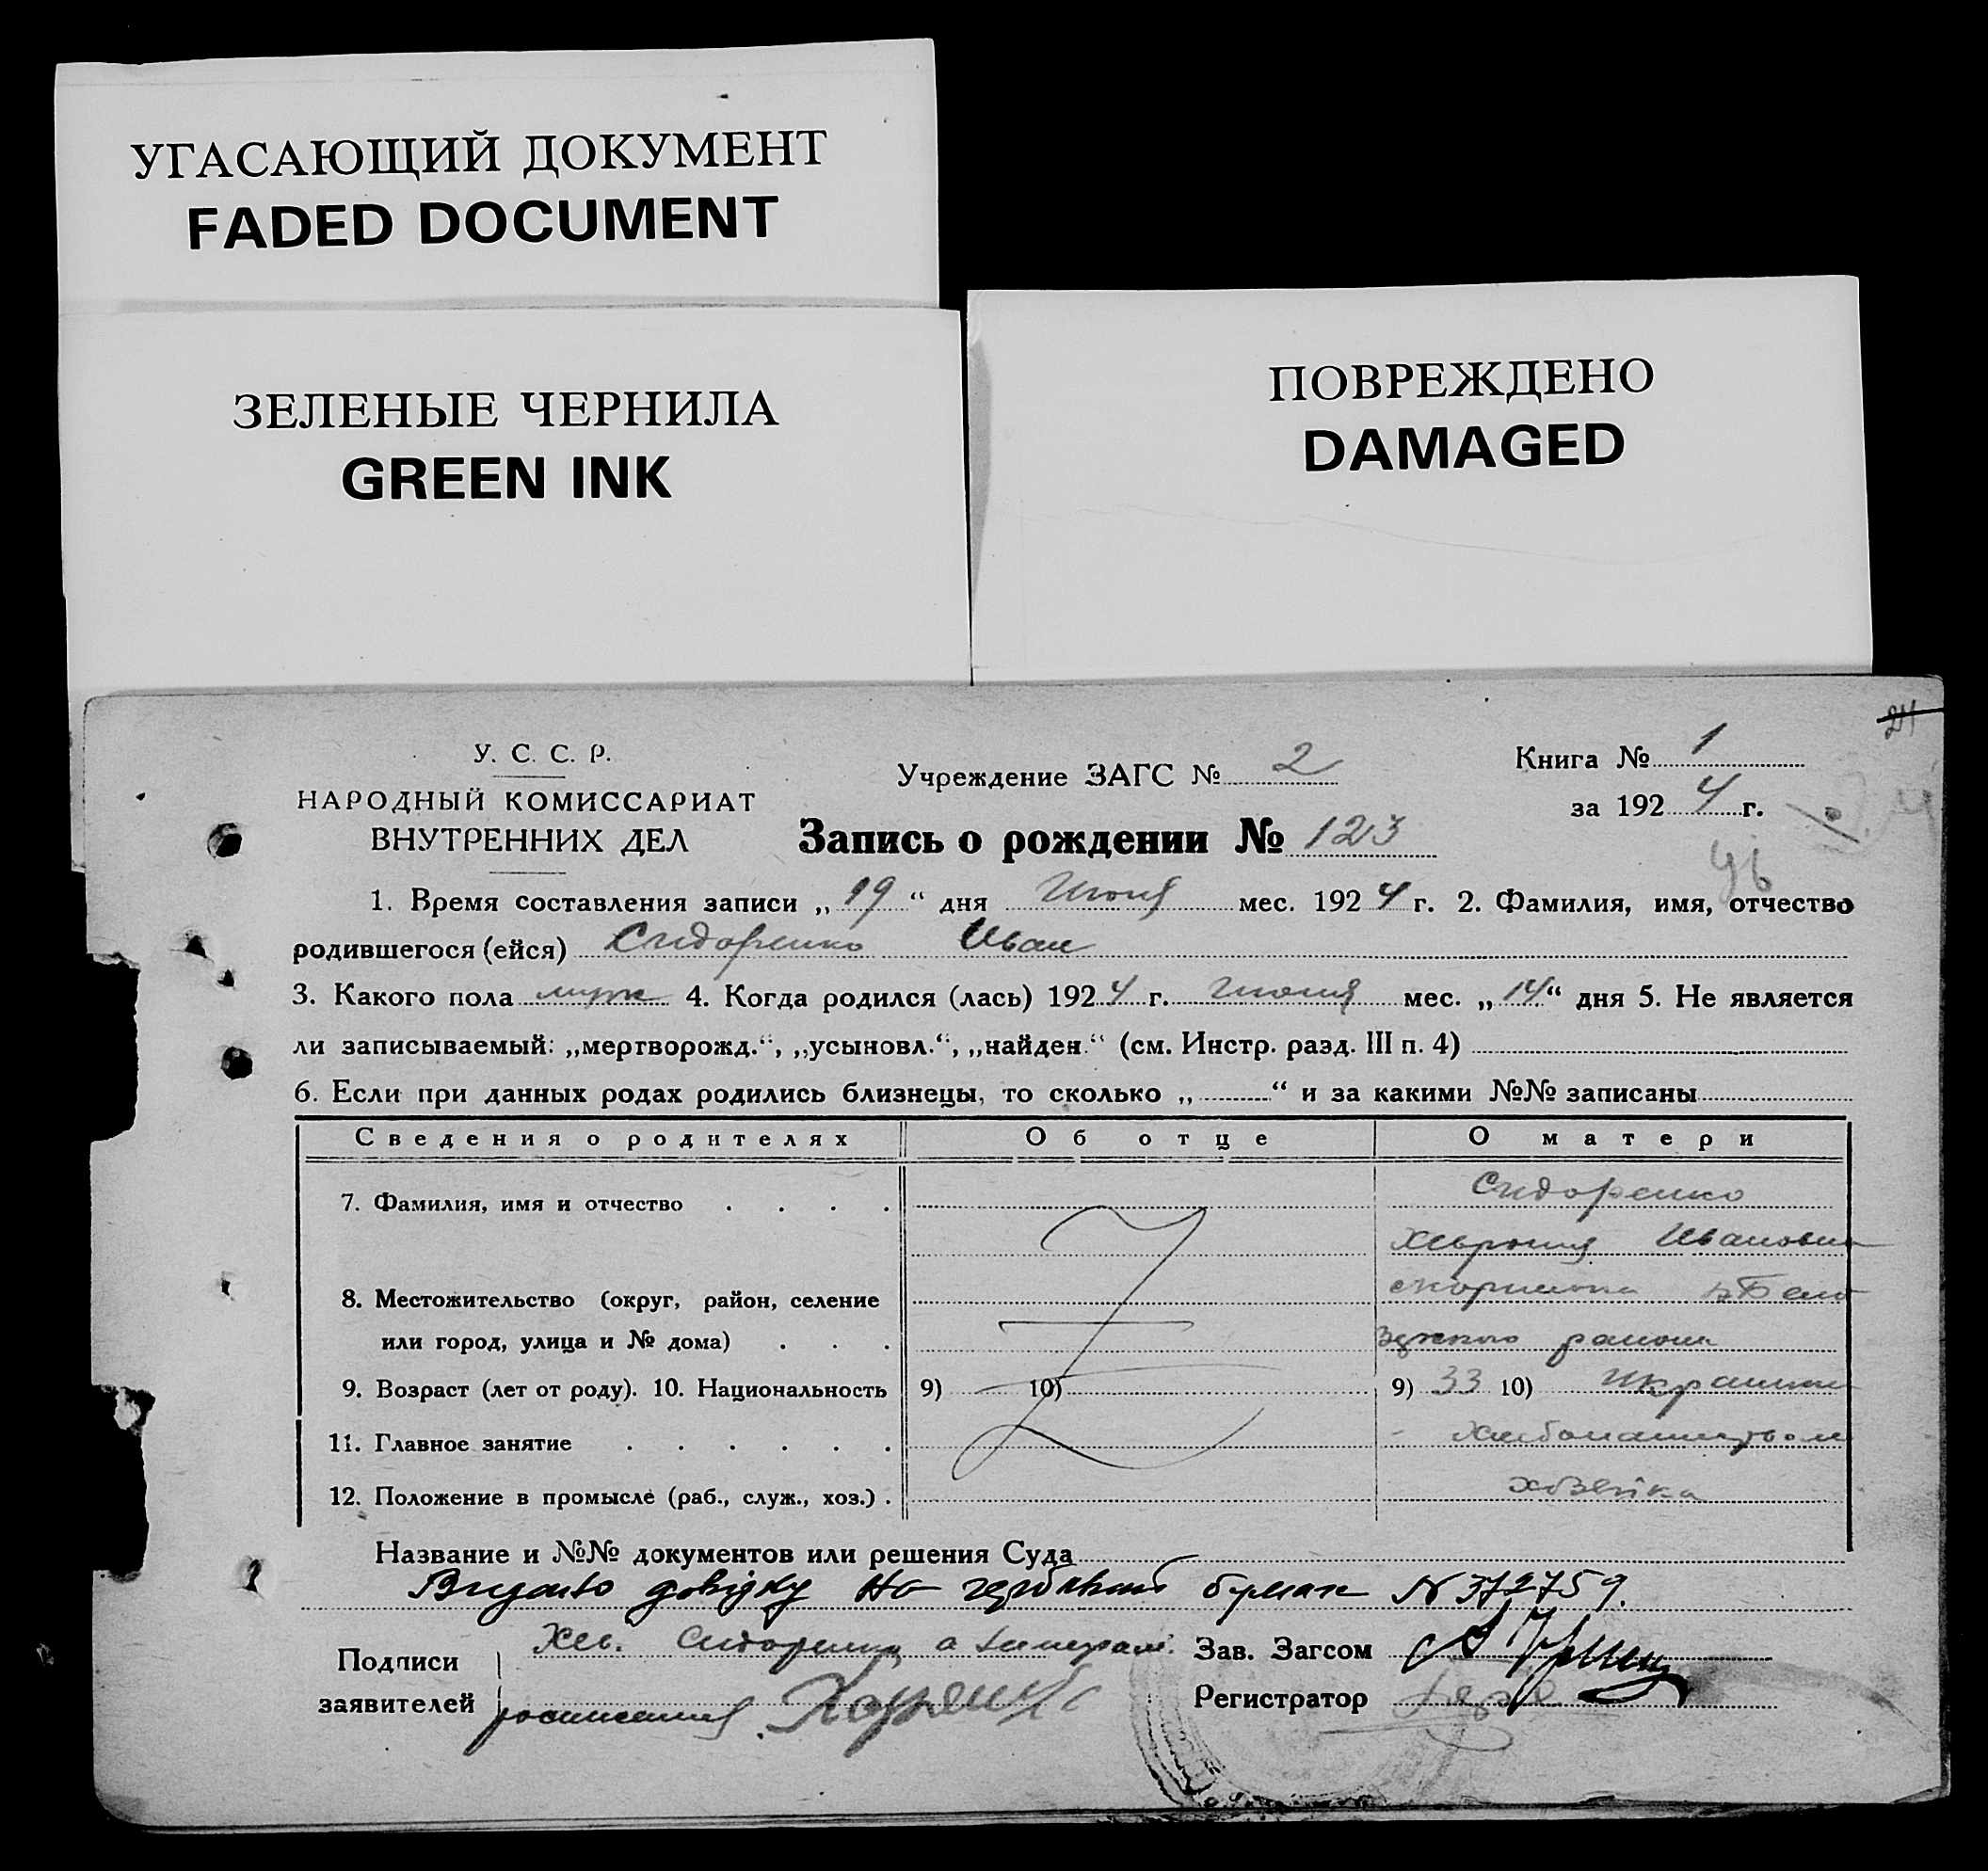 УГАСАЮЩИЙ ДОКУМЕНТ
FADED DOCUMENT
ЗЕЛЕНЫЕ ЧЕРНИЛА
GREEN INK
ПОВРЕЖДЕНО
DAMAGED
24
У. С. С. Р.
НАРОДНЫЙ КОМИССАРИАТ
ВНУТРЕННИХ ДЕЛ
Учреждение ЗАГС № 2
Книга № 1
за 1924 г.
Запись о рождении № 123
46
1. Время составления записи „19“ дня Июня мес. 1924 г. 2. Фамилия, имя, отчество
родившегося (ейся) Сидоренко Иван
3. Какого пола муж 4. Когда родился (лась) 1924 г. Июня мес. „14“ дня 5. Не является
ли записываемый: „мертворожд.“, „усыновл.“, „найден.“ (см. Инстр. разд. III п. 4)
6. Если при данных родах родились близнецы, то сколько „ “ и за какими №№ записаны
Сведения о родителях Об отце О матери
7. Фамилия, имя и отчество Сидоренко
Хеврония Ивановна
8. Местожительство (округ, район, селение
или город, улица и № дома) района
9. Возраст (лет от роду). 10. Национальность 9) 10) 9) 33 10)
11. Главное занятие
12. Положение в промысле (раб., служ., хоз.)
Название и №№ документов или решения Суда
Видано довідку на N 372759.
Подписи Хев. Сидоренко а Зав. Загсом
заявителей Регистратор